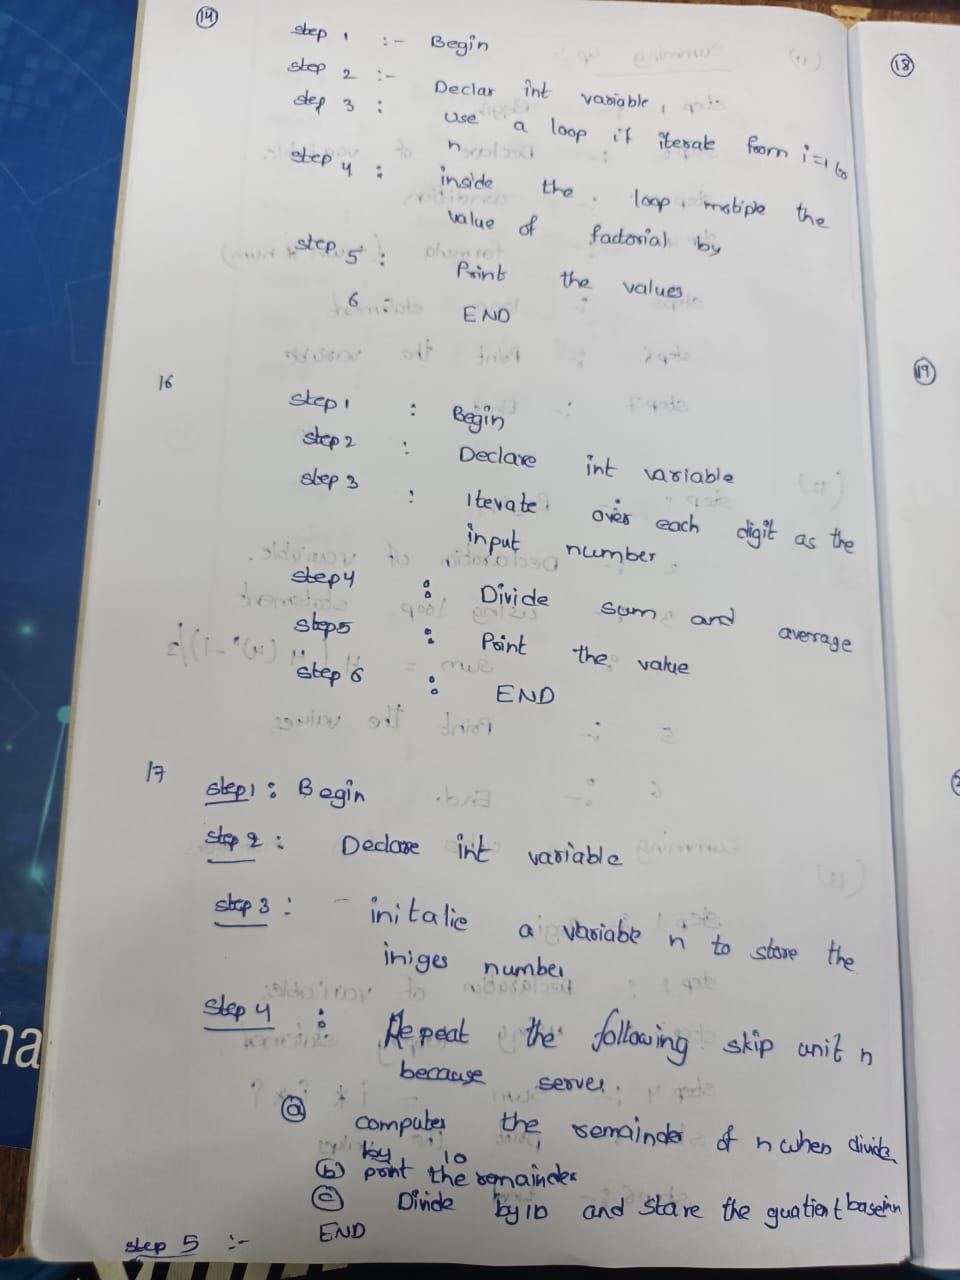 14
step 1 :- Begin
step 2 :- Declar int variable,
step 3 : use a loop if iterate from i=1 to
n
step 4 : inside the loop, mstiple the
value of factorial by
step 5 : Print the values
6 : END
16
step 1 : Begin
step 2 : Declare int variable
step 3 : Iterate over each digit as the
input number.
step 4 : Divide sum and average
step 5 : Print the value
step 6 : END
17
step 1 : Begin
step 2 : Declare int variable
step 3 : initalie a variable n to store the
iniges number
step 4 : Repeat the following skip unit n
because serves.
a computer the remainder of n when divide
by 10
b print the remainder
c Divide by 10 and stare the quatient base in
step 5 :- END
18
19
ha